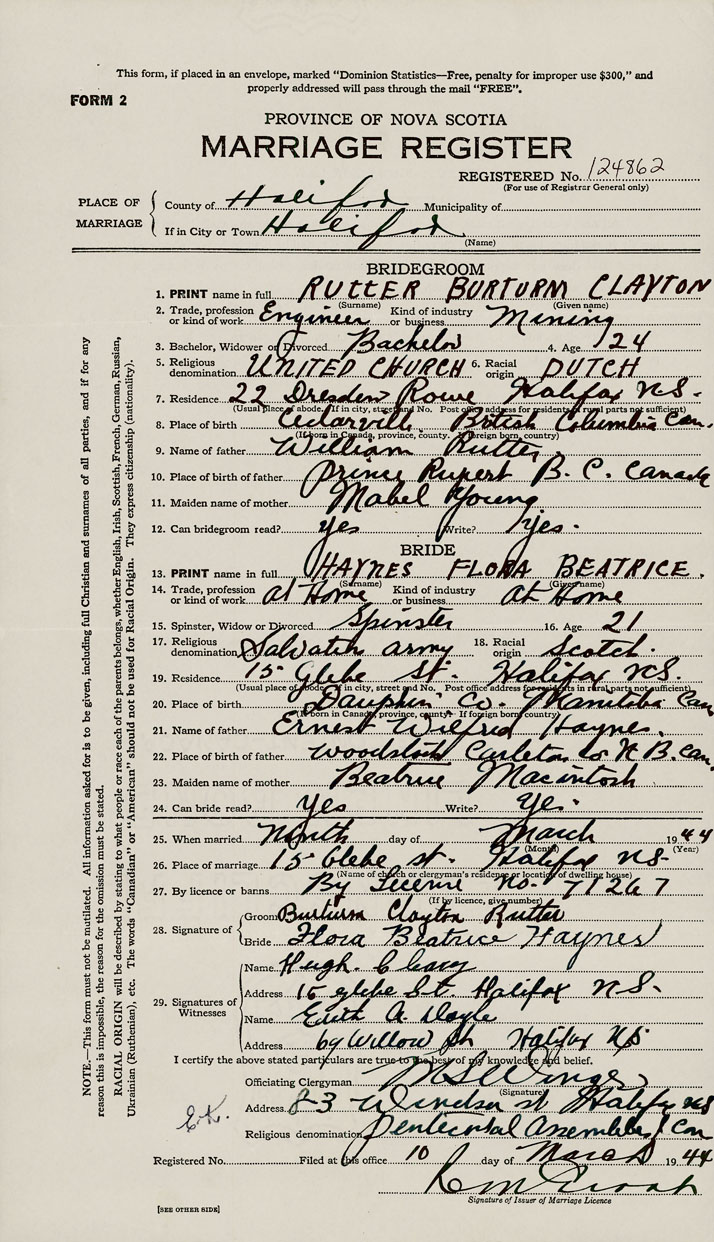 This form, if placed in an envelope, marked “Dominion Statistics—Free, penalty for improper use $300,” and
properly addressed will pass through the mail “FREE”.
FORM 2
PROVINCE OF NOVA SCOTIA
MARRIAGE REGISTER
REGISTERED No. 124862
(For use of Registrar General only)
PLACE OF MARRIAGE
County of Halifax Municipality of
If in City or Town Halifax
(Name)
BRIDEGROOM
1. PRINT name in full RUTTER BURTURM CLAYTON
(Surname) (Given name)
2. Trade, profession or kind of work Engineer Kind of industry or business Mining
3. Bachelor, Widower or Divorced Bachelor 4. Age 24
5. Religious denomination UNITED CHURCH 6. Racial origin DUTCH
7. Residence 22 Dresden Rowe Halifax N.S.
(Usual place of abode. If in city, street and No. Post office address for residents of rural parts not sufficient)
8. Place of birth Cedarville British Columbia Can.
(If born in Canada, province, county. If foreign born, country)
9. Name of father William Rutter
10. Place of birth of father Prince Rupert B.C. Canada
11. Maiden name of mother Mabel Young
12. Can bridegroom read? yes Write? yes.
BRIDE
13. PRINT name in full HAYNES FLORA BEATRICE.
(Surname) (Given name)
14. Trade, profession or kind of work at Home Kind of industry or business at Home
15. Spinster, Widow or Divorced Spinster 16. Age 21
17. Religious denomination Salvation army 18. Racial origin Scotch.
19. Residence 15 Glebe St. Halifax N.S.
(Usual place of abode. If in city, street and No. Post office address for residents in rural parts not sufficient)
20. Place of birth Dauphin Co. Manitoba Can
(If born in Canada, province, county. If foreign born country)
21. Name of father Ernest Wilfred Haynes.
22. Place of birth of father Woodstock Carleton Co N.B. Can.
23. Maiden name of mother Beatrice Macintosh
24. Can bride read? Yes Write? Yes.
25. When married Ninth day of March 1944
(Month) (Year)
26. Place of marriage 15 Glebe St. Halifax N.S.
(Name of church or clergyman's residence or location of dwelling house)
27. By licence or banns By License No. 71267
(If by licence, give number)
28. Signature of
Groom Burturm Clayton Rutter
Bride Flora Beatrice Haynes
29. Signatures of Witnesses
Name Hugh
Address 15 glebe St. Halifax N.S.
Name Edith A. Doyle
Address 69 Willow Halifax NS
I certify the above stated particulars are true to the best of my knowledge and belief.
Officiating Clergyman
(Signature)
Address Windsor st Halifax NS
Religious denomination Pentecostal Assemblies Can
E.K.
Registered No. Filed at this office 10 day of March 1944
Signature of Issuer of Marriage Licence
[SEE OTHER SIDE]
NOTE.—This form must not be mutilated. All information asked for is to be given, including full Christian and surnames of all parties, and if for any
reason this is impossible, the reason for the omission must be stated.
RACIAL ORIGIN will be described by stating to what people or race each of the parents belongs, whether English, Irish, Scottish, French, German, Russian,
Ukrainian (Ruthenian), etc. The words “Canadian” or “American” should not be used for Racial Origin. They express citizenship (nationality).